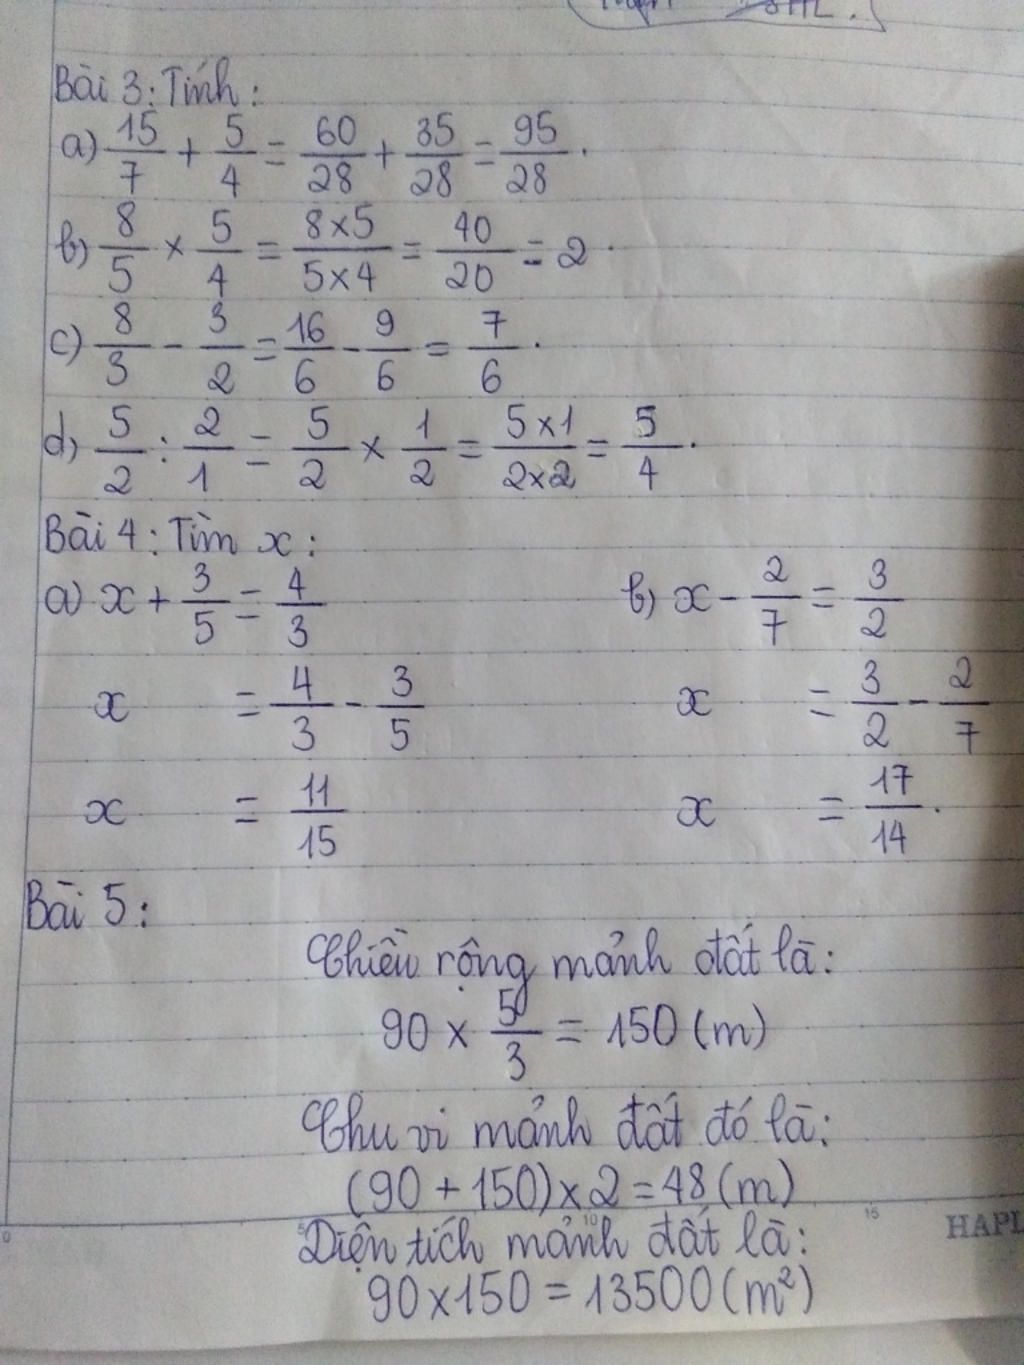 Bài 3: Tính:
a) 15/7 + 5/4 = 60/28 + 35/28 = 95/28.
b) 8/5 × 5/4 = 8×5/5×4 = 40/20 = 2.
c) 8/3 - 3/2 = 16/6 - 9/6 = 7/6.
d) 5/2 : 2/1 = 5/2 × 1/2 = 5×1/2×2 = 5/4.
Bài 4: Tìm x:
a) x + 3/5 = 4/3 b) x - 2/7 = 3/2
x = 4/3 - 3/5 x = 3/2 - 2/7
x = 11/15 x = 17/14.
Bài 5:
Chiều rộng mảnh đất là:
90 × 5/3 = 150 (m)
Chu vi mảnh đất đó là:
(90 + 150) × 2 = 48 (m)
0 5 10 15 HAPL
Diện tích mảnh đất là:
90 × 150 = 13500 (m²)